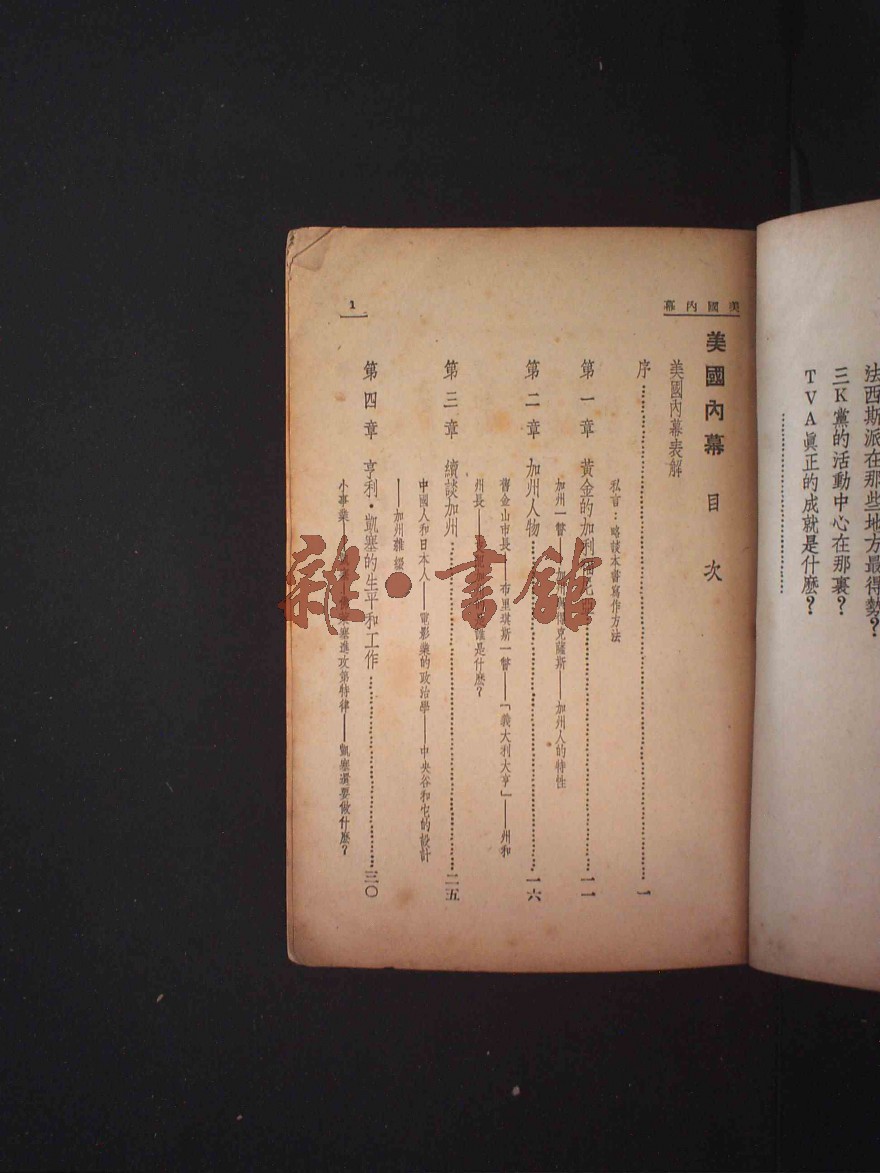 法西斯派在那些地方最得勢？
三K黨的活動中心在那裏？
TVA眞正的成就是什麽？
美國內幕
1
美國內幕 目次
美國內幕表解
序 一
私言：略談本書寫作方法
第一章 黃金的加利 一一
加州一瞥 克薩斯——加州人的特性
第二章 加州人物 一六
舊金山市長 布里琪斯一瞥——「義大利大亨」——州和
州長 是什麽？
第三章 續談加州 二五
中國人和日本人——電影業的政治學——中央谷和屯的設計
——加州雜綴
第四章 亨利・凱塞的生平和工作 三〇
小事業 塞進攻第特律——凱塞還要做什麽？
雜・書館